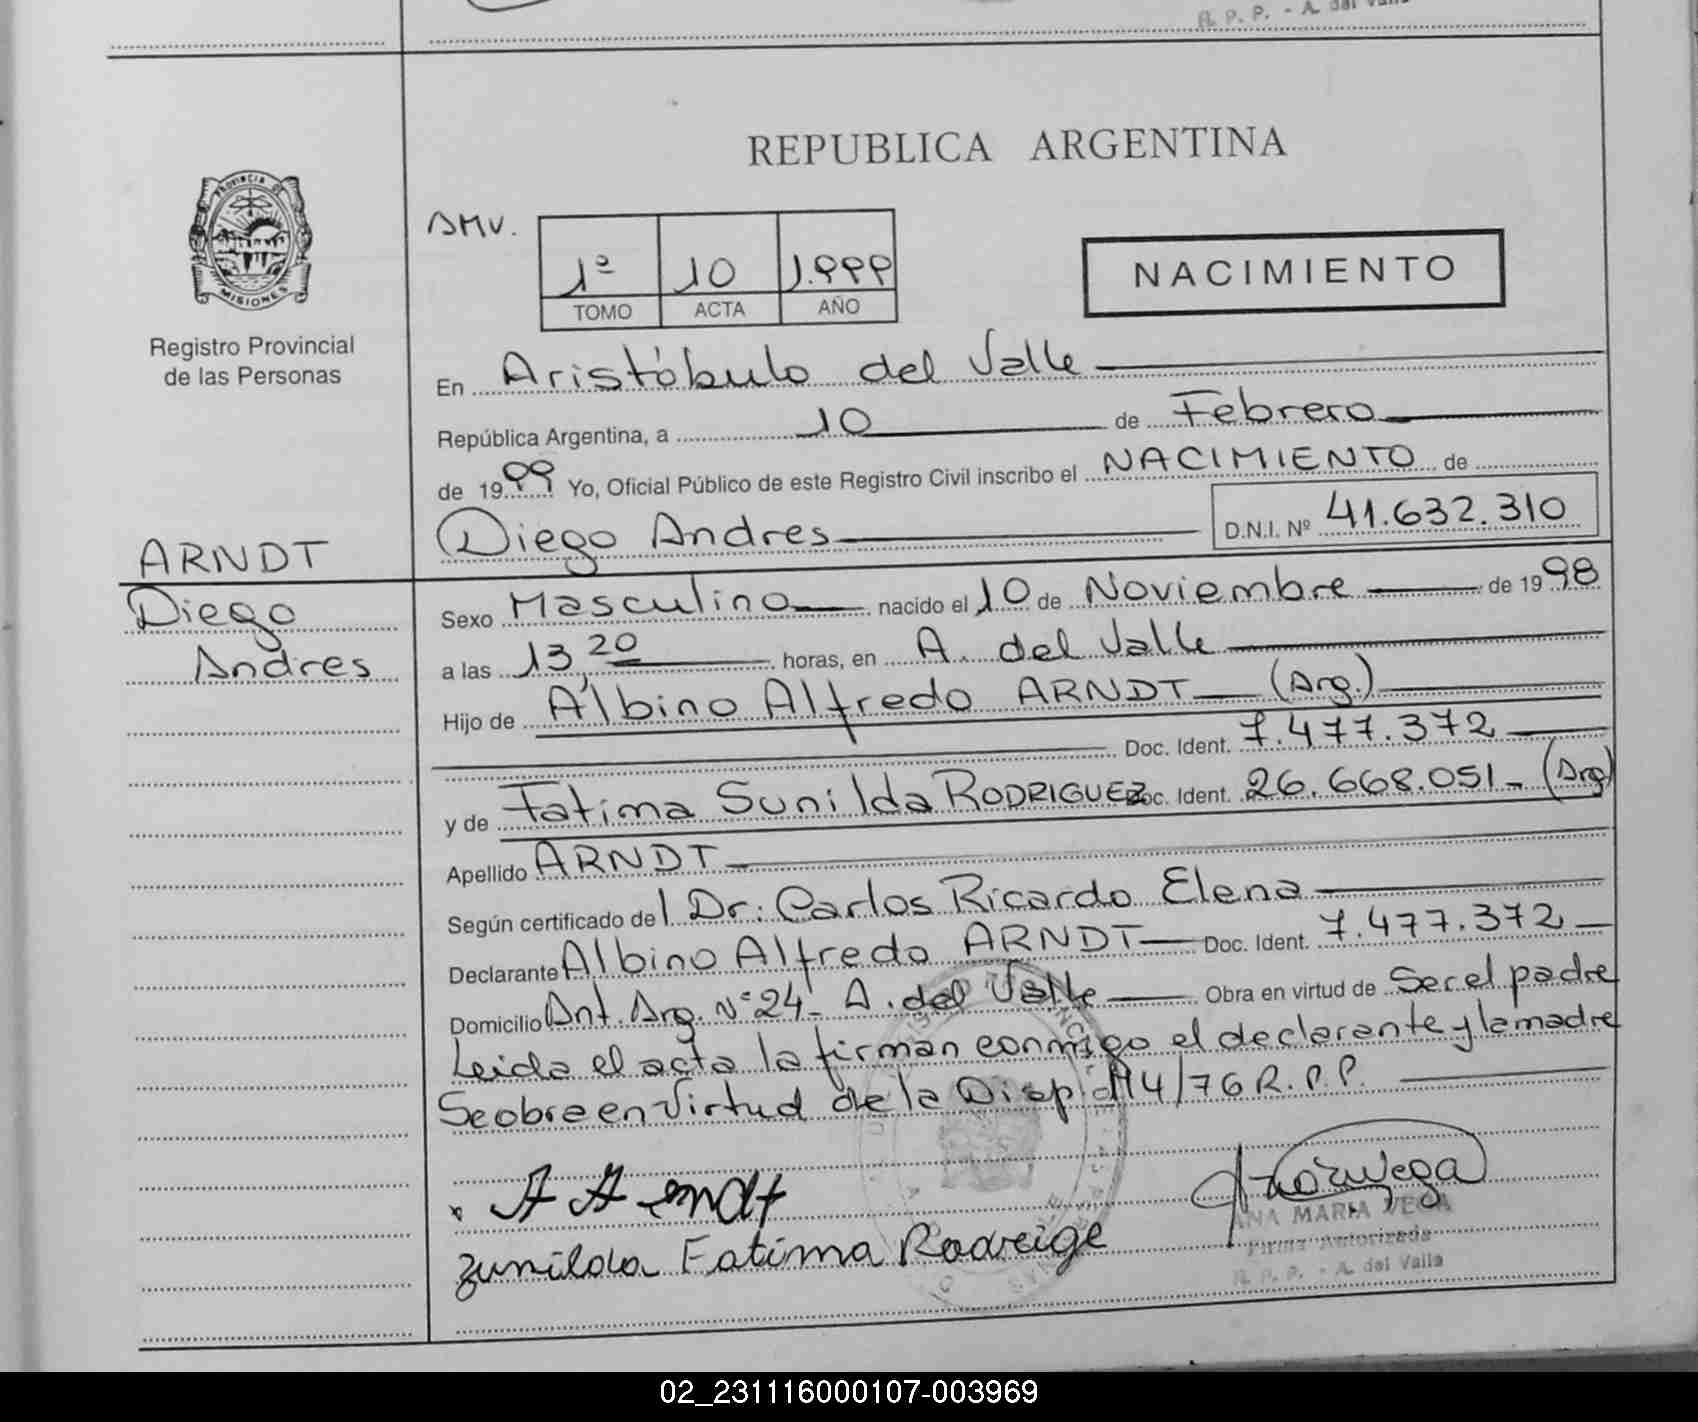 R. P. P. - A. del Valle
REPUBLICA ARGENTINA
PROVINCIA DE
MISIONES
Registro Provincial
de las Personas
AMV.
1º 10 1.999
TOMO ACTA AÑO
NACIMIENTO
En Aristóbulo del Valle
República Argentina, a 10 de Febrero
de 1999 Yo, Oficial Público de este Registro Civil inscribo el NACIMIENTO de
Diego Andres D.N.I. Nº 41.632.310
ARNDT
Diego
Andres
Sexo Masculino nacido el 10 de Noviembre de 1998
a las 13,20 horas, en A. del Valle
Hijo de Albino Alfredo ARNDT (Arg.)
Doc. Ident. 7.477.372
y de Fatima Sunilda RODRIGUEZ Doc. Ident. 26.668.051- (Arg)
Apellido ARNDT
Según certificado del Dr. Carlos Ricardo Elena
Declarante Albino Alfredo ARNDT Doc. Ident. 7.477.372
Domicilio Ant. Arg. Nº 24 A. del Valle Obra en virtud de Ser el padre
Leida el acta la firman conmigo el declarante y la madre
Se obra en virtud de la Disp. 114/76 R.P.P.
A A endt
Zunilda Fatima Rodreige
ANA MARIA VEGA
Firma Autorizada
R. P. P. - A. del Valle
02_231116000107-003969